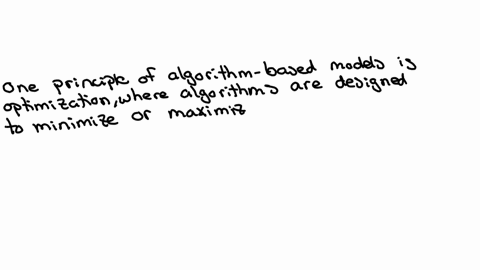 One principle of algorithm-based models is
optimization, where algorithms are designed
to minimize or maximiz